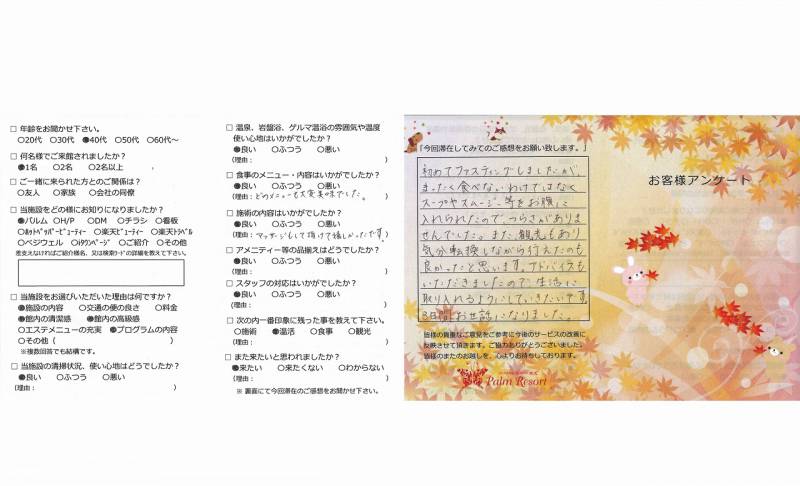 □ 年齢をお聞かせ下さい。
○20代 ○30代 ●40代 ○50代 ○60代~
□ 何名様でご来館されましたか?
●1名 ○2名 ○2名以上
□ ご一緒に来られた方とのご関係は?
○友人 ○家族 ○会社の同僚
□ 当施設をどの様にお知りになりましたか?
●パルム ○H/P ○DM ○チラシ ○看板
○ホットペッパービューティー ○楽天ビューティー ○楽天トラベル
○ベジウェル ○iタウンページ ○ご紹介 ○その他
差支えなければご紹介様名、又は検索ワードの詳細を教えて下さい。
□ 当施設をお選びいただいた理由は何ですか?
●施設の内容 ○交通の便の良さ ○料金
●館内の清潔感 ●館内の高級感
○エステメニューの充実 ●プログラムの内容
○その他( )
※複数回答でも結構です。
□ 当施設の清掃状況、使い心地はどうでしたか?
●良い ○ふつう ○悪い
(理由: )
□ 温泉、岩盤浴、ゲルマ温浴の雰囲気や温度
使い心地はいかがでしたか?
●良い ○ふつう ○悪い
(理由: )
□ 食事のメニュー・内容はいかがでしたか?
●良い ○ふつう ○悪い
(理由: どのメニューも大変美味でした。 )
□ 施術の内容はいかがでしたか?
●良い ○ふつう ○悪い
(理由: マッサージもして頂けて嬉しかったです。)
□ アメニティー等の品揃えはどうでしたか?
●良い ○ふつう ○悪い
(理由: )
□ スタッフの対応はいかがでしたか?
●良い ○ふつう ○悪い
(理由: )
□ 次の内一番印象に残った事を教えて下さい。
○施術 ●温活 ○食事 ○観光
(理由: )
□ また来たいと思われましたか?
●来たい ○来たくない ○わからない
(理由: )
※ 裏面にて今回滞在のご感想をお聞かせ下さい。
「今回滞在してみてのご感想をお願い致します。」
初めてファスティングしましたが、
まったく食べないわけではなく
スープやスムージー等をお腹に
入れられたので、つらさがありま
せんでした。また、観光もあり
気分転換しながら行えたのも
良かったと思います。アドバイスも
いただきましたので、生活に
取り入れるようにしていきたいです。
3日間お世話になりました。
皆様の貴重なご意見をご参考に今後のサービスの改善に
反映させて頂きます。ご協力ありがとうございました。
皆様のまたのお越しを、心よりお待ちしております。
Palm Resort
お客様アンケート